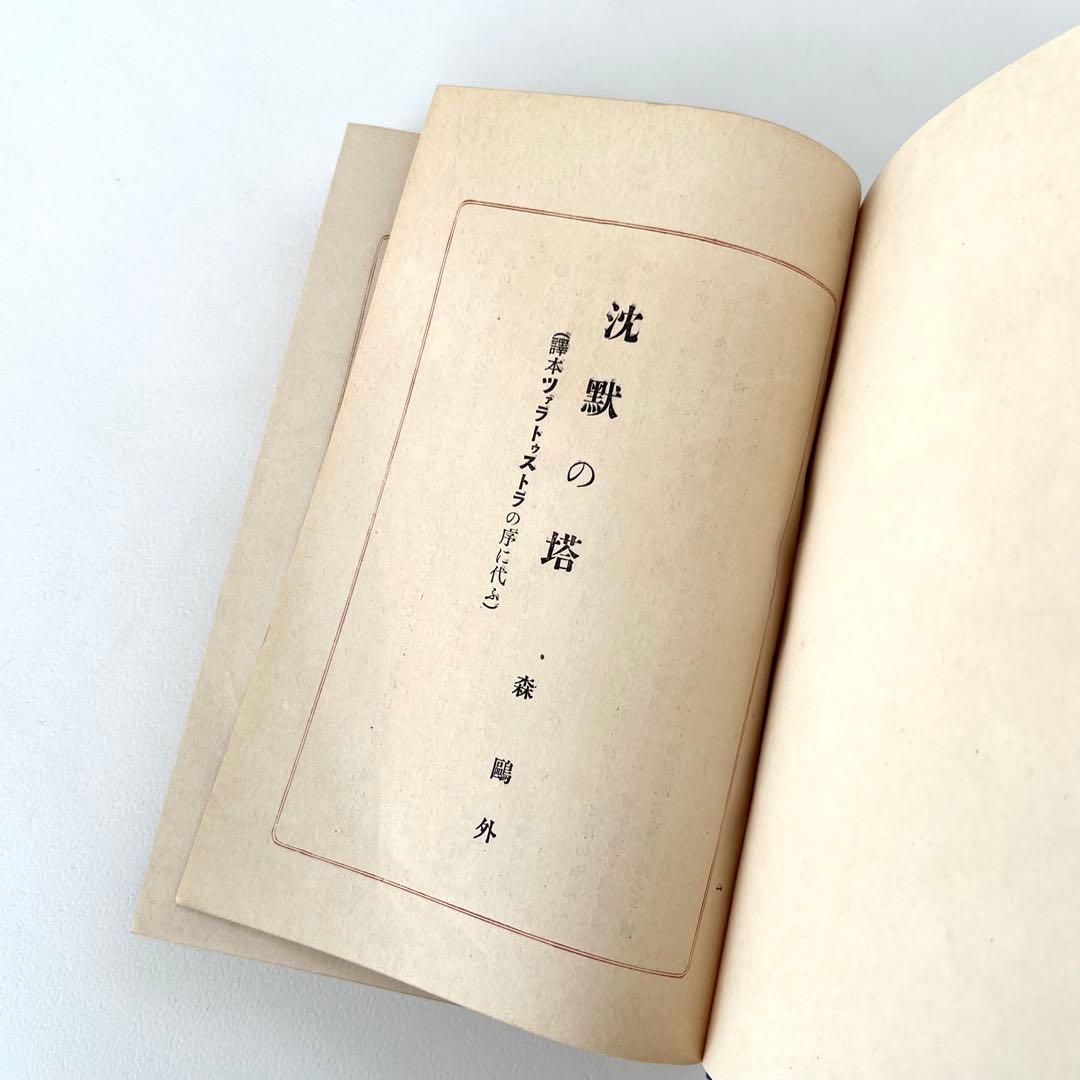 沈默の塔
（譯本ツァラトゥストラの序に代ふ）
森鷗外